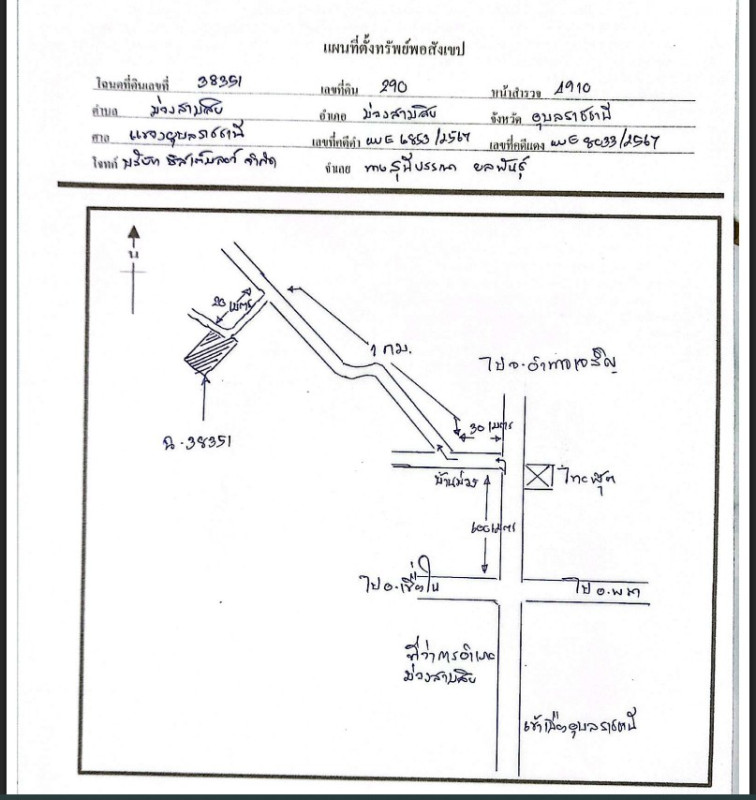 แผนที่ตั้งทรัพย์พอสังเขป
โฉนดที่ดินเลขที่ 38351 เลขที่ดิน 290 หน้าสำรวจ 4910
ตำบล ม่วงสามสิบ อำเภอ ม่วงสามสิบ จังหวัด อุบลราชธานี
ศาล แขวงอุบลราชธานี เลขที่คดีดำ ผบE 6853/2567 เลขที่คดีแดง ผบE 8033/2567
โจทก์ บริษัท จำกัด จำเลย นาง
น
20 เมตร
1 กม.
ไป จ.อำนาจเจริญ
30 เมตร
ฉ.38351
บ้านม่วง
ไทวัสดุ
เมตร
ไป อ.เขื่องใน
ไป อ.พนา
ที่ว่าการอำเภอ
ม่วงสามสิบ
เข้าเมืองอุบลราชธานี